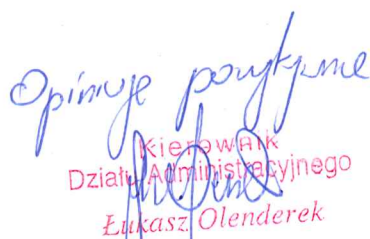 Opiniuję pozytywnie
Kierownik
Działu Administracyjnego
Łukasz Olenderek